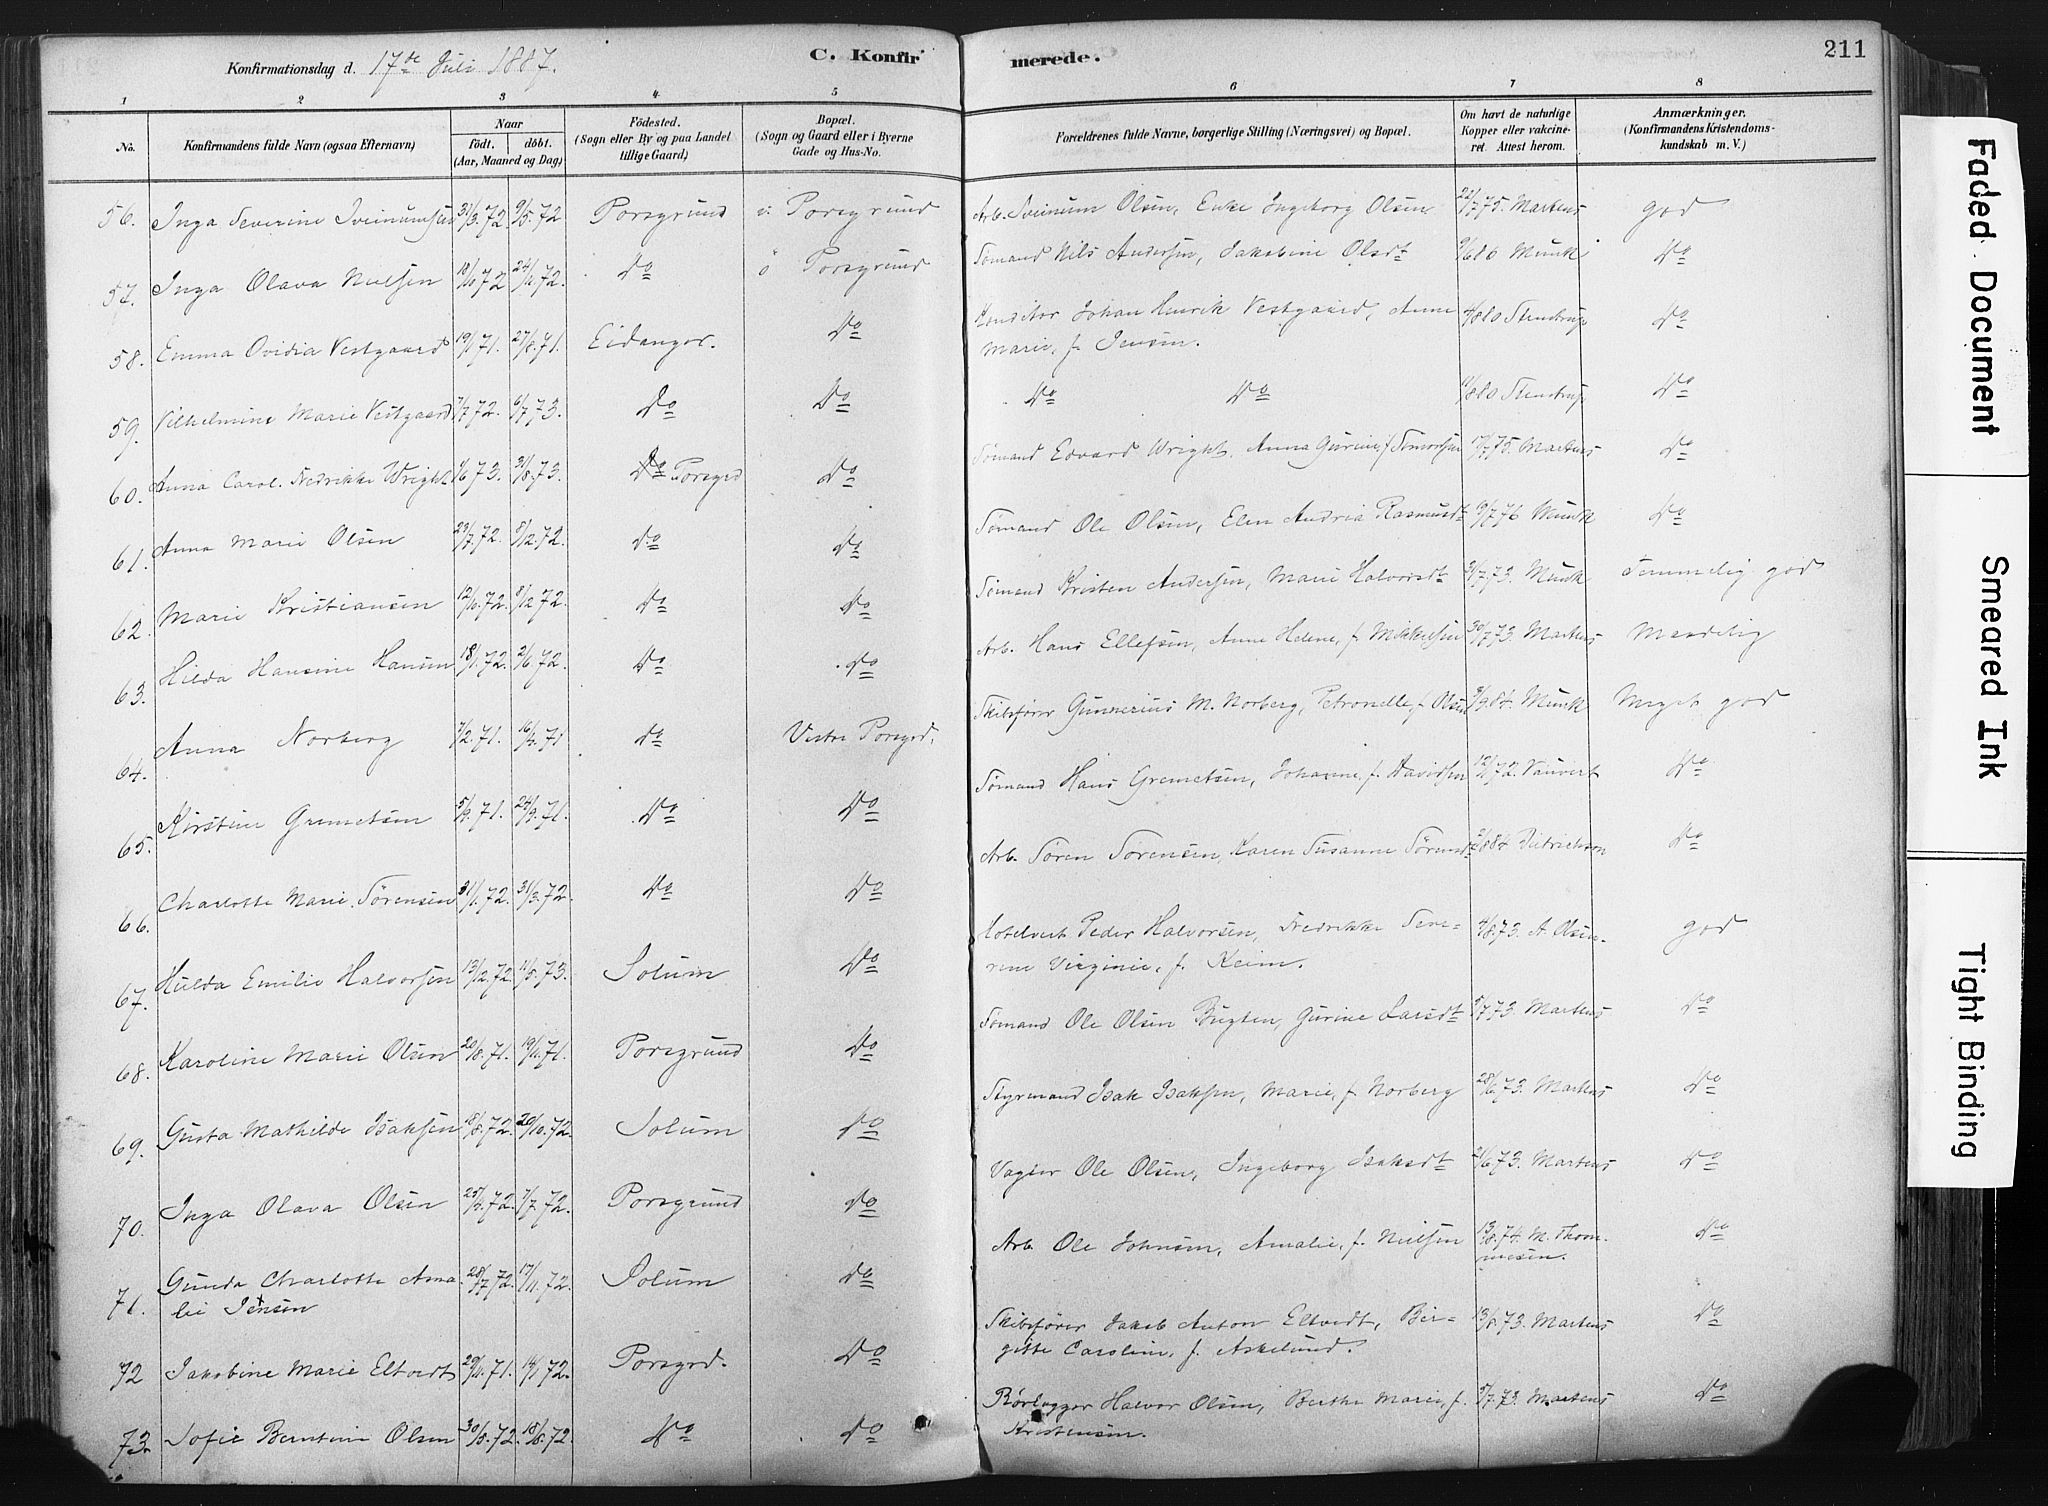 Konfirmationsdag d. 17de Juli 1887.
C. Konfirmerede.
211
1 2 3 4 5 6 7 8
No.
Konfirmandens fulde Navn (ogsaa Efternavn)
Naar
født. døbt.
(Aar, Maaned og Dag)
Fødested.
(Sogn eller By og paa Landet
tillige Gaard)
Bopæl.
(Sogn og Gaard eller i Byerne
Gade og Hus-No.
Forældrenes fulde Navne, borgerlige Stilling (Næringsvei) og Bopæl.
Om havt de naturlige
Kopper eller vakcineret
Attest herom.
Anmærkninger.
(Konfirmandens Kristendomskundskab
m. V.)
56. Inga Severine Sveinumsen 31/3.72. 9/5.72 Porsgrund v. Porsgrund Arb. Sveinum Olsen, Enke Ingeborg Olsen 22/7.75. Martens god
57. Inga Olava Nielsen 18/10.72 24/11.72. Do ö Porsgrund Sømand Nils Andersen, Jakobine Olsdt 9/6 80 Munk Do
58. Emma Ovidia Vestgaard 19/1.71. 27/8.71. Eidanger. Do Konditor Johan Henrik Vestgaard, Anne
Marie, f. Jensen. 4/8 80 Stenstrup Do
59. Vilhelmine Marie Vestgaard 7/7.72. 6/7.73. Do Do Do Do 11/8 80 Stenstrup Do
60. Anna Carol. Fredrikke Wright 1/6 73. 31/8.73. Do Porsgrd Do Sømand Edvard Wright, Anna Gurine, f. 17/7.75. Martens Do
61. Anna Marie Olsen 23/7.72. 8/12.72. do do Sømand Ole Olsen, Elen Andria Rasmusdt 9/7.76 Munk Do
62. Marie Kristiansen 12/10.72. 8/12.72. do do Sømand Kristen Andersen, Marie Halvorsdt 3/7.73. Munk Temmelig god
63. Hilda Hansine Hansen 18/1.72. 2/6.72. do do Arb. Hans Ellefsen, Anne Helene, f. Mikkelsen 30/7.73. Martens Maadelig
64. Anna Norberg 7/2.71. 16/4.71 do Vestre Porsgrd. Skibsfører Gunnerius M. Norberg, Petronelle, f. Olsen 3/9.84. Munk Meget god
65. Kirstine Grumetsen 5/9.71. 24/9.71. Do Do Sømand Hans Grumetsen, Johanne, f. Davidsen 12/2.72. Vauvert Do
66. Charlotte Marie Sørensen 31/1.72. 31/3.72 Do Do Arb. Søren Sørensen, Karen Susanne Sørensdt 2/8 84 Dietrichson Do
67. Hulda Emilie Halvorsen 13/12.72. 11/5.73. Solum Do Hotelvert Peder Halvorsen, Fredrikke Severene
Virginie, f. Keim. 4/8.73. A. Olsen god
68. Karoline Marie Olsen 20/8.71. 19/11.71. Porsgrund Do Sømand Ole Olsen Bugten, Gurine Larsdt 5/7.73. Martens Do
69. Gusta Mathilde Isaksen 18/8.72. 20/10.72. Solum Do Styrmand Isak Isaksen, Marie, f. Norberg 28/6.73. Martens Do
70. Inga Olava Olsen 25/4.72. 7/7.72. Porsgrund Do Vagter Ole Olsen, Ingeborg Isaksdt 2/6.73. Martens Do
71. Gunda Charlotte Amalie
Jensen 28/7.72. 17/11.72. Solum do Arb. Ole Johnsen, Amalie, f. Nielsen 13/8.74. M. Thommesen. Do
72 Jakobine Marie Eltvedt 29/11.71. 14/1.72. Porsgrd. Do Skibsfører Jakob Anton Eltvedt, Birgitte
Caroline, f. Askelund. 13/8.73. Martens Do
73. Sofie Berntine Olsen 30/5.72. 18/8.72. Do Do Rørlægger Halvor Olsen, Berthe Marie, f.
Kristensen. 3/7.73. Martens Do
Faded Document
Smeared Ink
Tight Binding